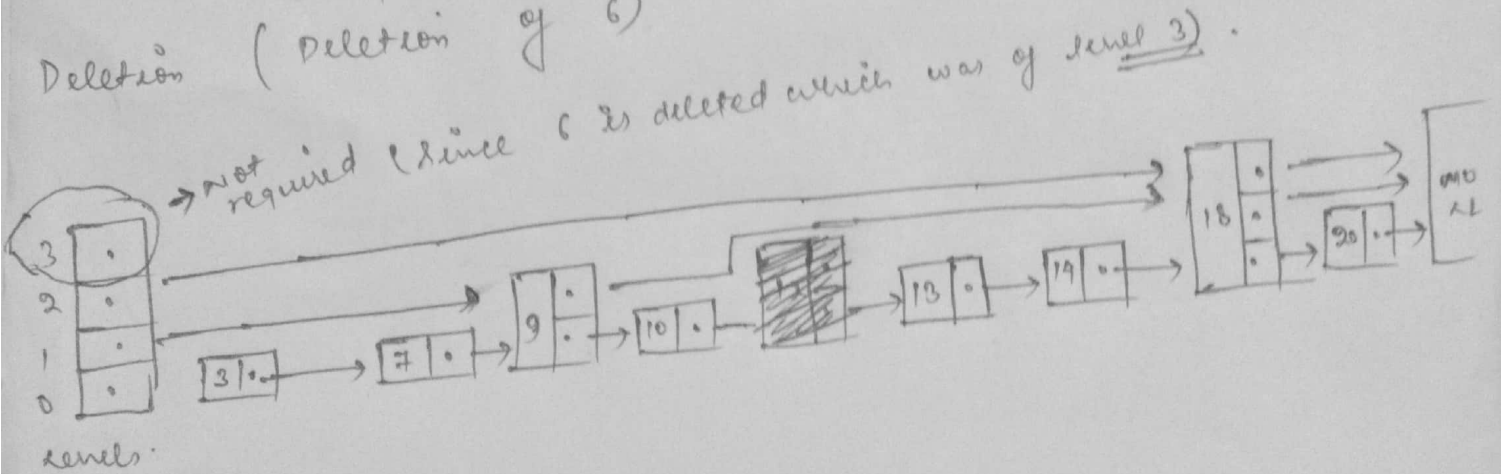 Deletion (Deletion of 6)
→ Not required (since 6 is deleted which was of level 3).
3
2
1
0
levels.
3
7
9
10
13
14
18
20